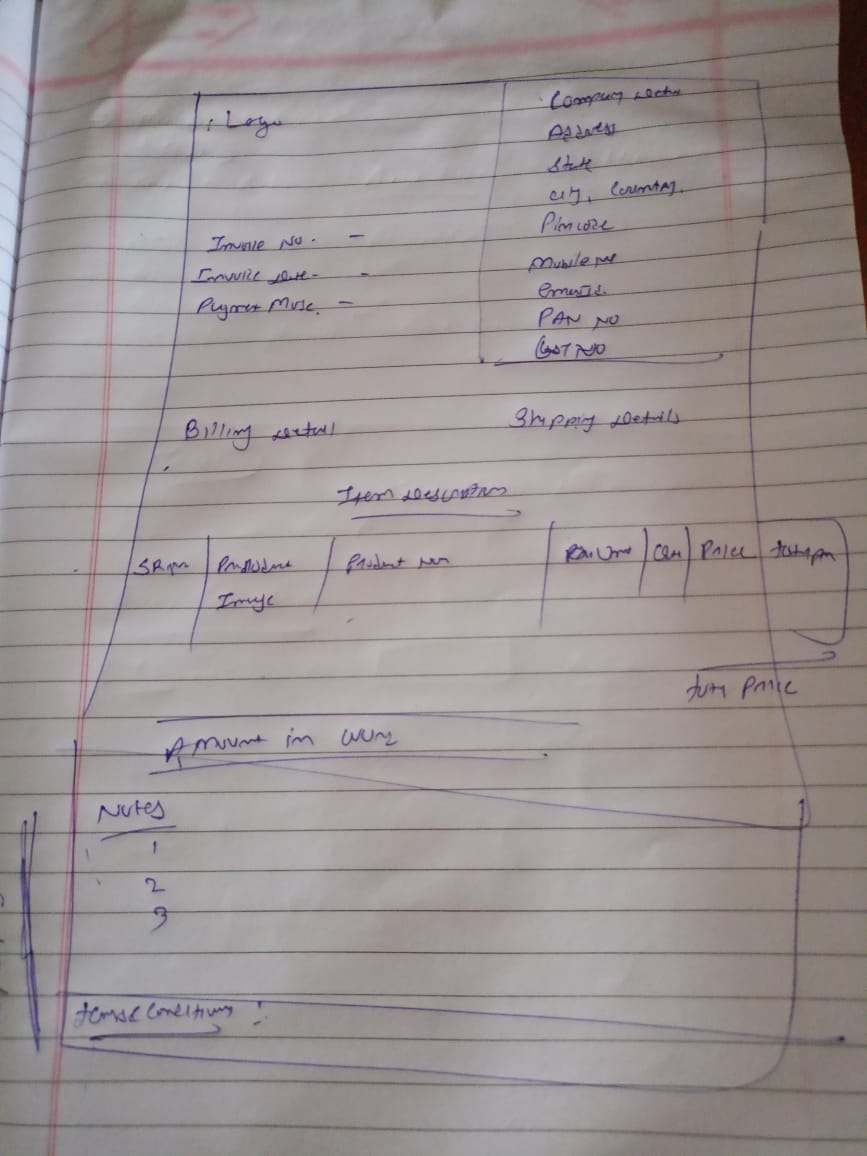 Logo
Company Detai
Address
State
City, Country.
Pincode
Invoice No. -
Invoice Date- -
Mobile no
Paymet Mode. -
email Id.
PAN NO
GST NO
Billing detail
Shipping Details
Item Description
SR no
Product
Image
Product nam
Price
Total Price
Amount in word
Notes
1
2
3
terms & Conditions :